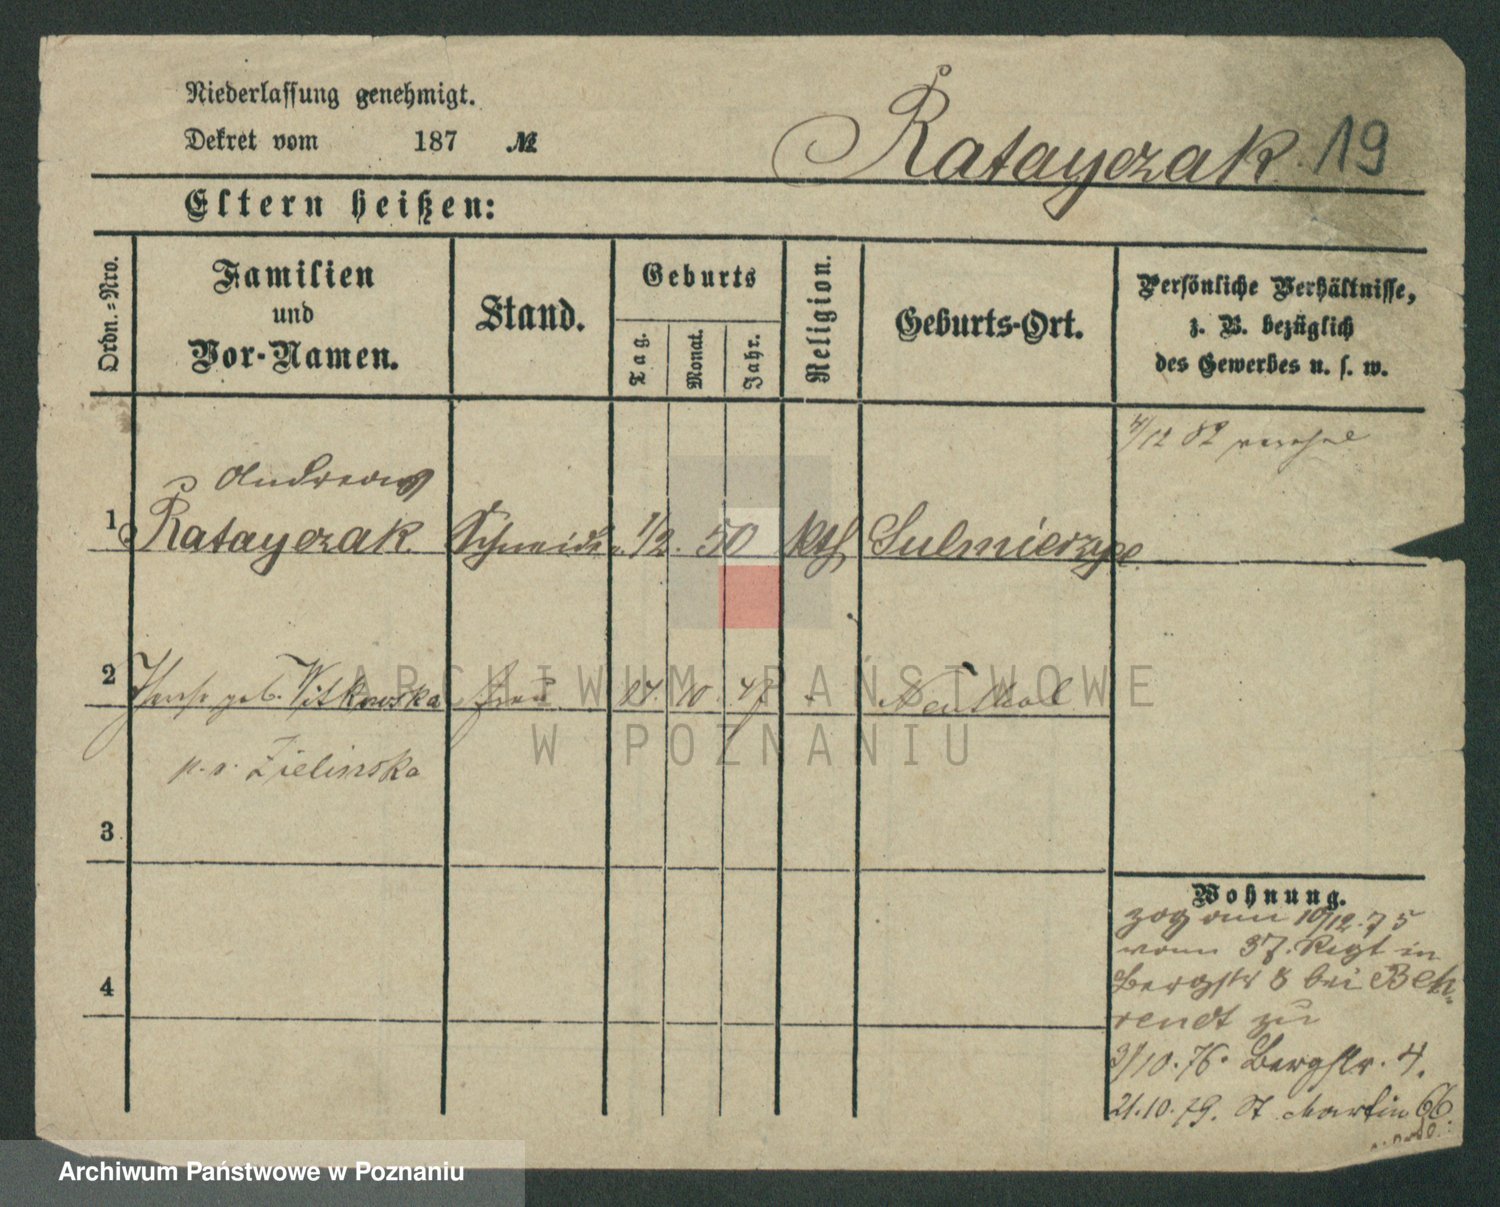 Niederlassung genehmigt.
Dekret vom 187 №
Ratayczak 19
Eltern heißen:
Ordn.=Nro.
Familien
und
Vor-Namen.
Stand.
Geburts
Tag.
Monat.
Jahr.
Religion.
Geburts-Ort.
Persönliche Verhältnisse,
z. B. bezüglich
des Gewerbes u. s. w.
4/12 82
Andreas
1 Ratayczak Schneider 1/2. 50 kth Sulmierzyce
2 geb. Witkowska Frau 10 47 Neuthal
p. v. Zielinska
3
4
Wohnung.
zog am 10/12.75
vom 37. Regt in
Bergstr 8 bei Beh-
rendt zu
3/10.76. Bergstr. 4.
21.10.79. St Martin 66
ARCHIWUM PAŃSTWOWE
W POZNANIU
Archiwum Państwowe w Poznaniu